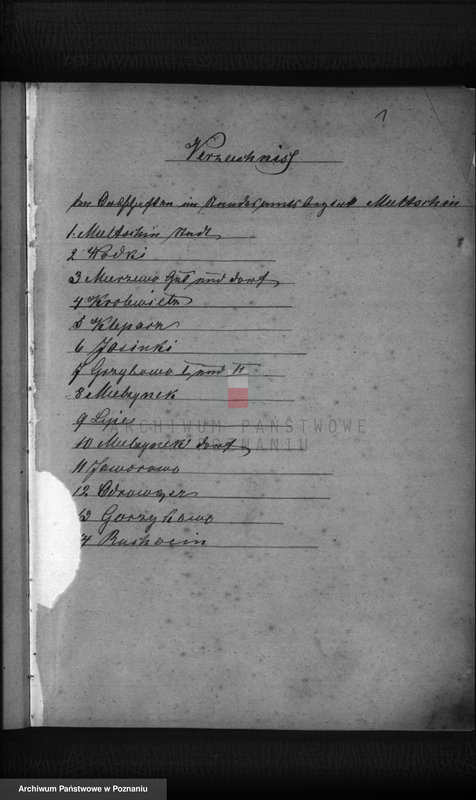 1
Verzeichniss
der Ortschaften im Standesamtsbezirk Meltschin
1. Meltschin Stadt
2 Kodki
3 Murzewo Gut und Dorf
4
5 Kleparz
6 Jasinki
7 Grzybowo I und II
8 Mlynek
9 Lipie
10 Dorf
11 Jaworowo
12 Odrowąz
13 Gorzykowo
14 Ruchocin
ARCHIWUM PAŃSTWOWE
W POZNANIU
Archiwum Państwowe w Poznaniu